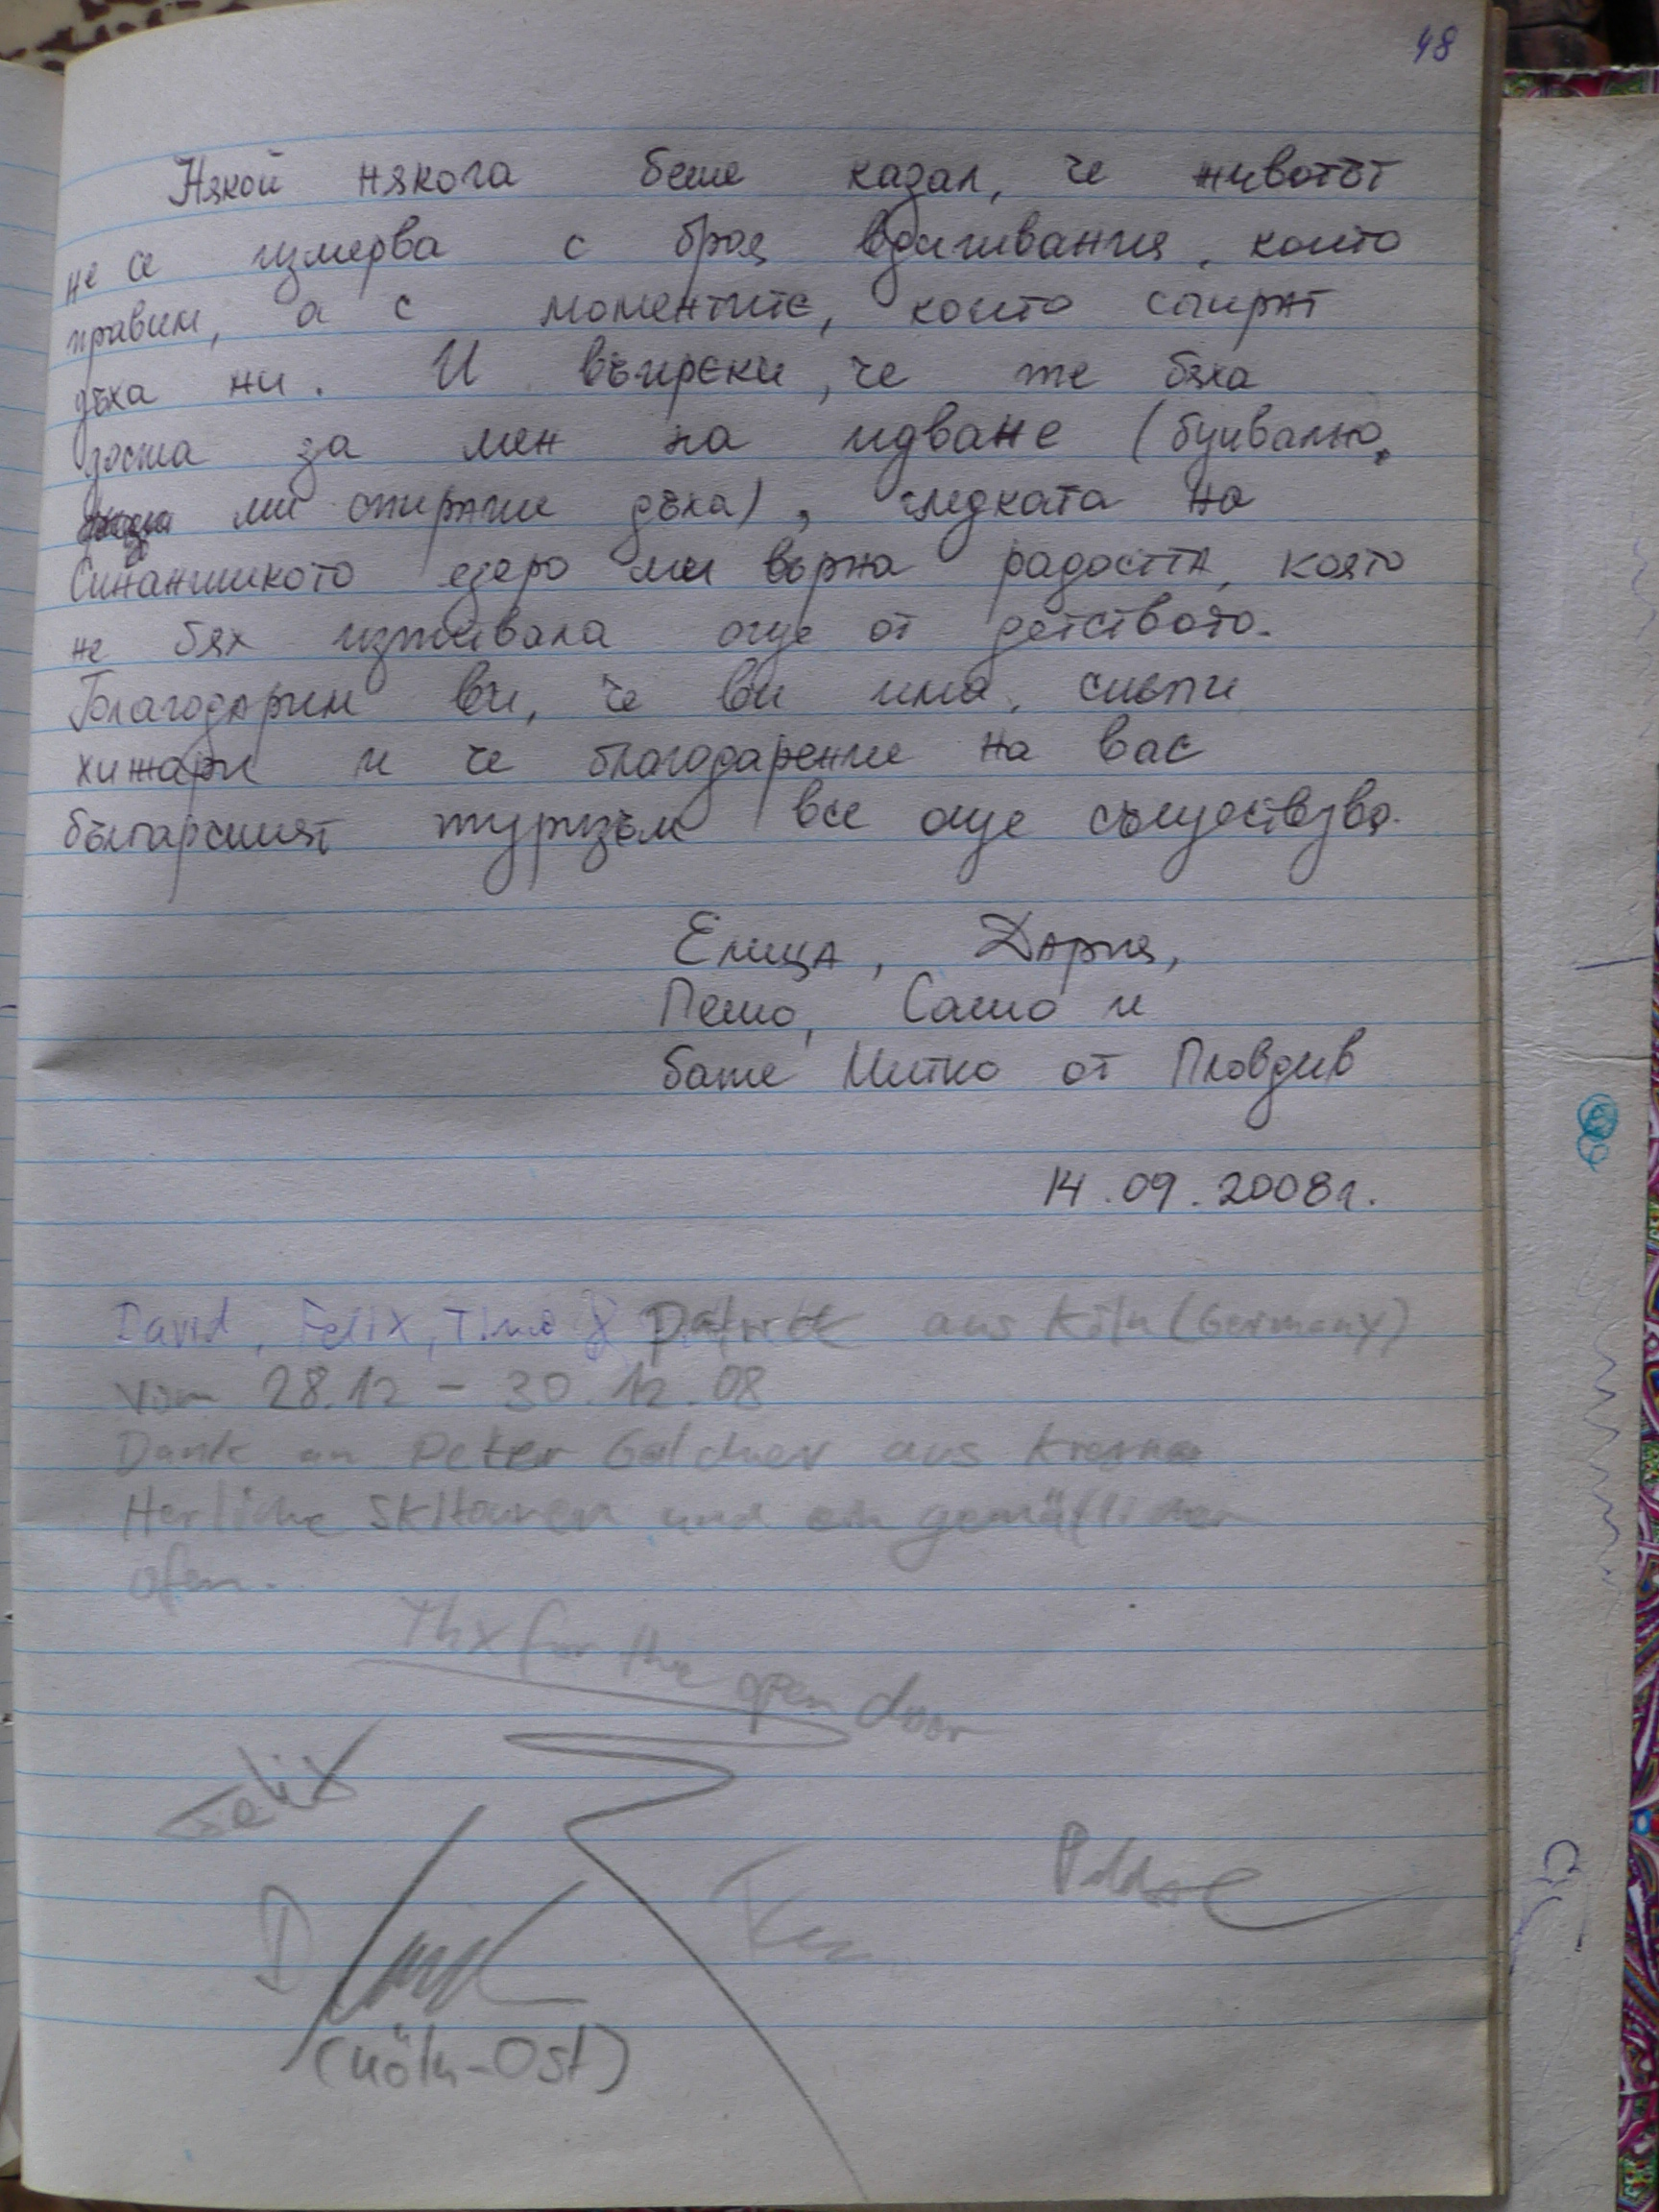 48
Някой някога беше казал, че животът
не се измерва с броя вдишвания, които
правим, а с моментите, които спират
дъха ни. И въпреки, че те бяха
доста за мен на идване (буквално
ми спираше дъха), гледката на
Синанишкото езеро ми върна радостта, която
не бях изживявала още от детството.
Благодарим ви, че ви има, скъпи
хижари и че благодарение на вас
българският туризъм все още съществува.
Елица, Дария,
Пешо, Сашо и
бате Митко от Пловдив
14.09.2008г.
David, Felix, Timo & Patrick aus Köln (Germany)
vom 28.12 - 30.12.08
Dank an Peter aus Kresna
Herliche Skitouren und ein gemütlicher
Ofen.
Thx for the open door
Felix
(Köln-Ost)